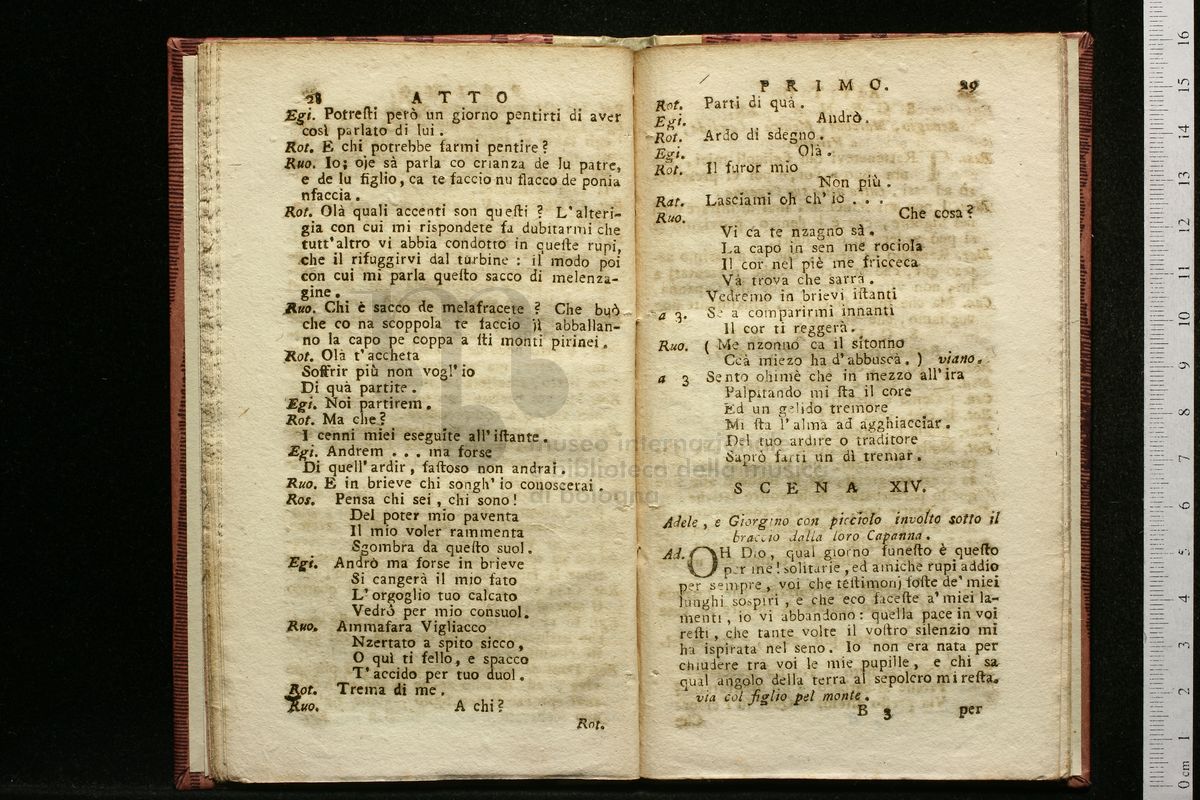 28 ATTO
Egi. Potreſti però un giorno pentirti di aver
così parlato di lui.
Rot. E chi potrebbe farmi pentire?
Ruo. Io; oje sà parla co crianza de lu patre,
e de lu figlio, ca te faccio nu flacco de ponia
nfaccia.
Rot. Olà quali accenti son queſti ? L'alteri-
gia con cui mi rispondete fa dubitarmi che
tutt'altro vi abbia condotto in queſte rupi,
che il rifuggirvi dal turbine : il modo poi
con cui mi parla queſto sacco di melenza-
gine.
Ruo. Chi è sacco de melafracete ? Che buò
che co na scoppola te faccio jì abballan-
no la capo pe coppa a ſti monti pirinei.
Rot. Olà t'accheta
Soffrir più non vogl'io
Di quà partite.
Egi. Noi partirem.
Rot. Ma che?
I cenni miei eseguite all'iſtante.
Egi. Andrem . . . ma forse
Di quell'ardir, faſtoso non andrai.
Ruo. E in brieve chi songh'io conoscerai.
Ros. Pensa chi sei, chi sono!
Del poter mio paventa
Il mio voler rammenta
Sgombra da queſto suol.
Egi. Andrò ma forse in brieve
Si cangerà il mio fato
L'orgoglio tuo calcato
Vedrò per mio consuol.
Ruo. Ammafara Vigliacco
Nzertato a spito sicco,
O quì ti fello, e spacco
T'accido per tuo duol.
Rot. Trema di me.
Ruo. A chi?
Rot.
PRIMO. 29
Rot. Parti di quà.
Egi. Andrò.
Rot. Ardo di sdegno.
Egi. Olà.
Rot. Il furor mio
Non più.
Rat. Lasciami oh ch'io . . .
Ruo. Che cosa?
Vi ca te nzagno sà.
La capo in sen me rociola
Il cor nel piè me fricceca
Va trova che sarra.
Vedremo in brievi iſtanti
a 3. Se a comparirmi innanti
Il cor ti reggerà.
Ruo. ( Me nzonno ca il sitonno
Ccà miezo ha d'abbuscà. ) viano.
a 3 Sento ohimè che in mezzo all'ira
Palpitando mi ſta il core
Ed un gelido tremore
Mi ſta l'alma ad agghiacciar.
Del tuo ardire o traditore
Saprò farti un dì tremar.
SCENA XIV.
Adele, e Giorgino con picciolo involto sotto il
braccio dalla loro Capanna.
Ad. OH Dio, qual giorno funeſto è queſto
per me! solitarie, ed amiche rupi addio
per sempre, voi che teſtimonj foſte de' miei
lunghi sospiri, e che eco faceſte a' miei la-
menti, io vi abbandono: quella pace in voi
reſti, che tante volte il voſtro silenzio mi
ha ispirata nel seno. Io non era nata per
chiudere tra voi le mie pupille, e chi sa
qual angolo della terra al sepolcro mi reſta.
via col figlio pel monte.
B 3 per
museo internazi
biblioteca della musica
di bologna
0 cm 1 2 3 4 5 6 7 8 9 10 11 12 13 14 15 16